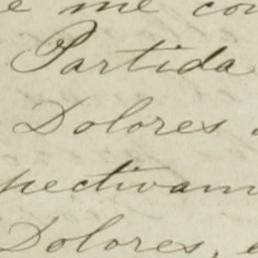 e me con
Partida
Dolores
pectivam
Dolores,